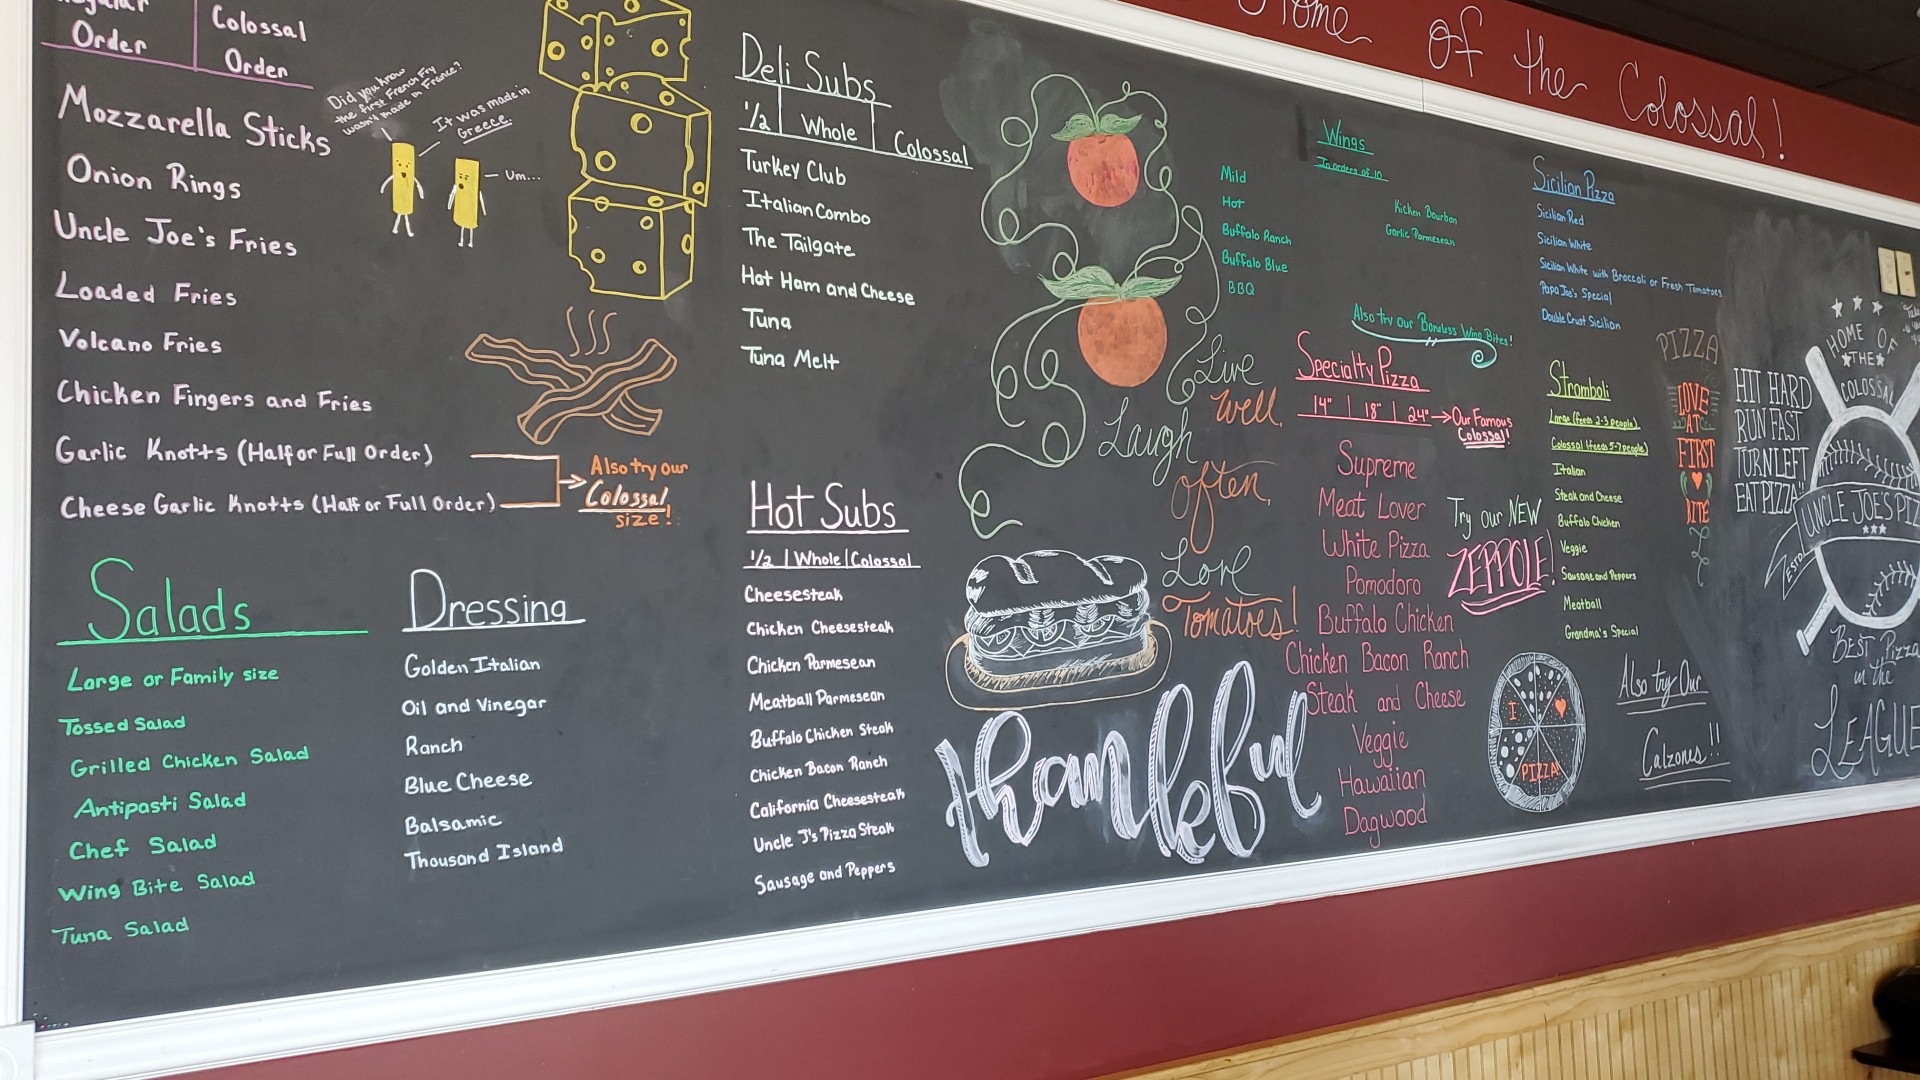 Home of the Colossal!
Order
Colossal
Order
Mozzarella Sticks
Onion Rings
Uncle Joe's Fries
Loaded Fries
Volcano Fries
Chicken Fingers and Fries
Garlic Knotts (Half or Full Order)
Cheese Garlic Knotts (Half or Full Order)
Also try our
Colossal
size!
Did you know
the first French Fry
wasn't made in France?
It was made in
Greece.
Um...
Salads
Large or Family size
Tossed Salad
Grilled Chicken Salad
Antipasti Salad
Chef Salad
Wing Bite Salad
Tuna Salad
Dressing
Golden Italian
Oil and Vinegar
Ranch
Blue Cheese
Balsamic
Thousand Island
Deli Subs
1/2 | Whole | Colossal
Turkey Club
Italian Combo
The Tailgate
Hot Ham and Cheese
Tuna
Tuna Melt
Hot Subs
1/2 | Whole | Colossal
Cheesesteak
Chicken Cheesesteak
Chicken Parmesean
Meatball Parmesean
Buffalo Chicken Steak
Chicken Bacon Ranch
California Cheesesteak
Uncle J's Pizza Steak
Sausage and Peppers
Live
Well,
Laugh
often,
Love
Tomatoes!
thankful
Wings
In orders of 10
Mild
Hot
Buffalo Ranch
Buffalo Blue
BBQ
Kichen Bourbon
Garlic Parmesean
Also try our Boneless Wing Bites!
Specialty Pizza
14" | 18" | 24" → Our Famous
Colossal!
Supreme
Meat Lover
White Pizza
Pomodoro
Buffalo Chicken
Chicken Bacon Ranch
Steak and Cheese
Veggie
Hawaiian
Dagwood
Try our NEW
ZEPPOLE!
Sicilian Pizza
Sicilian Red
Sicilian White
Sicilian White with Broccoli or Fresh Tomatoes
Papa Joe's Special
Double Crust Sicilian
Stromboli
Large (feeds 2-3 people)
Colossal (feeds 5-7 people)
Italian
Steak and Cheese
Buffalo Chicken
Veggie
Sausage and Peppers
Meatball
Grandma's Special
I
PIZZA
Also try Our
Calzones!!
PIZZA
LOVE
AT
FIRST
BITE
HIT HARD
RUN FAST
TURN LEFT
EAT PIZZA"
HOME OF
THE
COLOSSAL
UNCLE JOE'S PIZ
ESTD
BEST Pizza
in the
LEAGUE